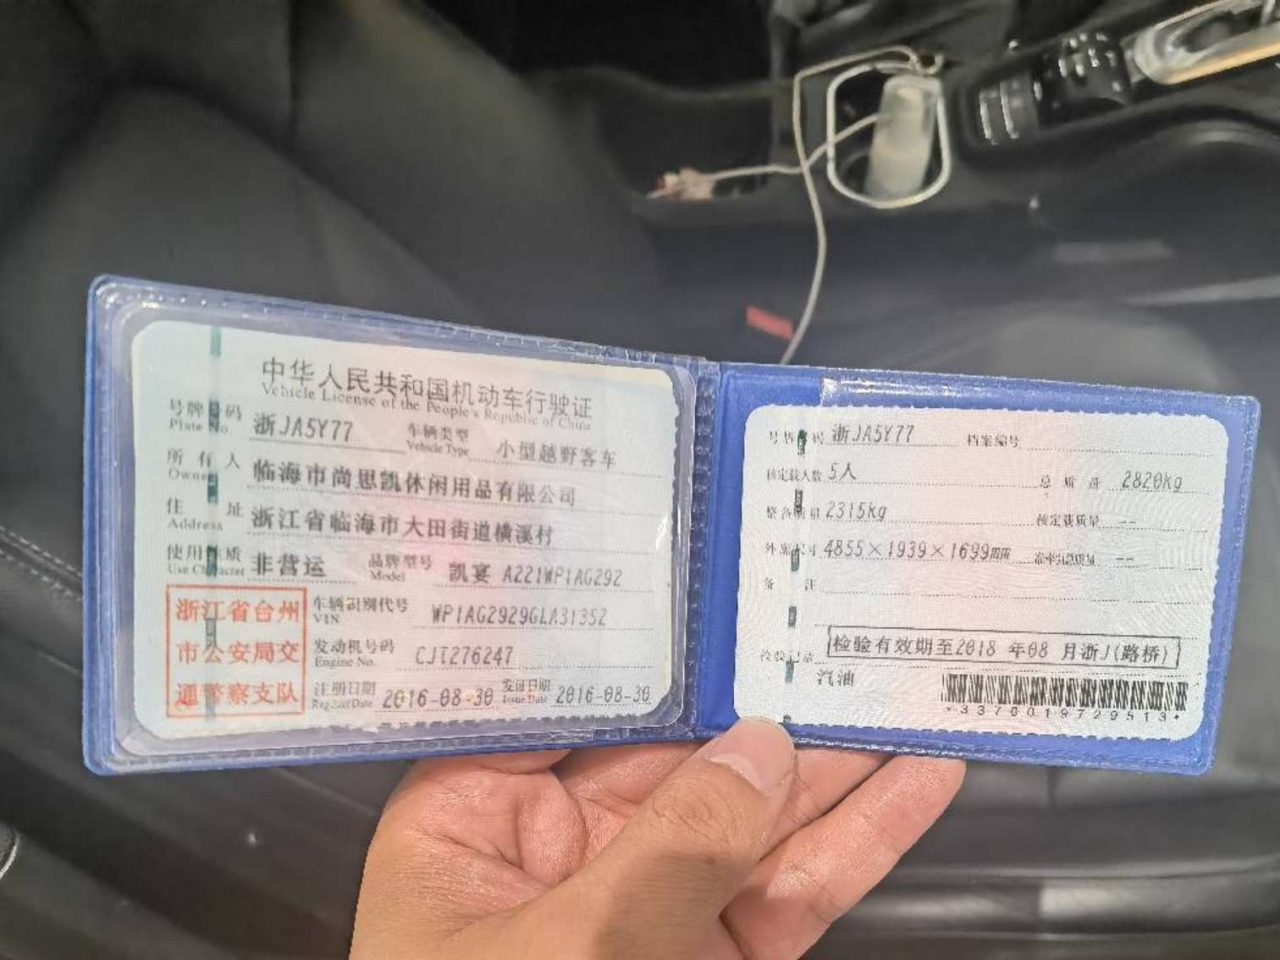 中华人民共和国机动车行驶证
Vehicle License of the People's Republic of China
号牌号码 浙JA5Y77 车辆类型 小型越野客车
Plate No. Vehicle Type
所有人 临海市尚思凯休闲用品有限公司
Owner
住址 浙江省临海市大田街道横溪村
Address
使用性质 非营运 品牌型号 凯宴 A221WP1AG292
Use Character Model
浙江省台州
市公安局交
通警察支队
车辆识别代号 WP1AG2929GLA31352
VIN
发动机号码 CJT276247
Engine No.
注册日期 2016-08-30 发证日期 2016-08-30
Register Date Issue Date
号牌号码 浙JA5Y77 档案编号
核定载人数 5人 总质量 2820kg
整备质量 2315kg 核定载质量 --
外廓尺寸 4855×1939×1699mm 准牵引总质量 --
备注
检验记录 检验有效期至2018年08月浙J(路桥)
汽油
*3370019729513*